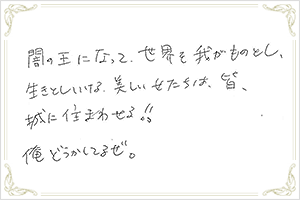 闇の王になって、世界を我がものとし、
生きとしいける、美しい女たちは、皆、
城に住まわせる!!
俺どうかしてるぜ。